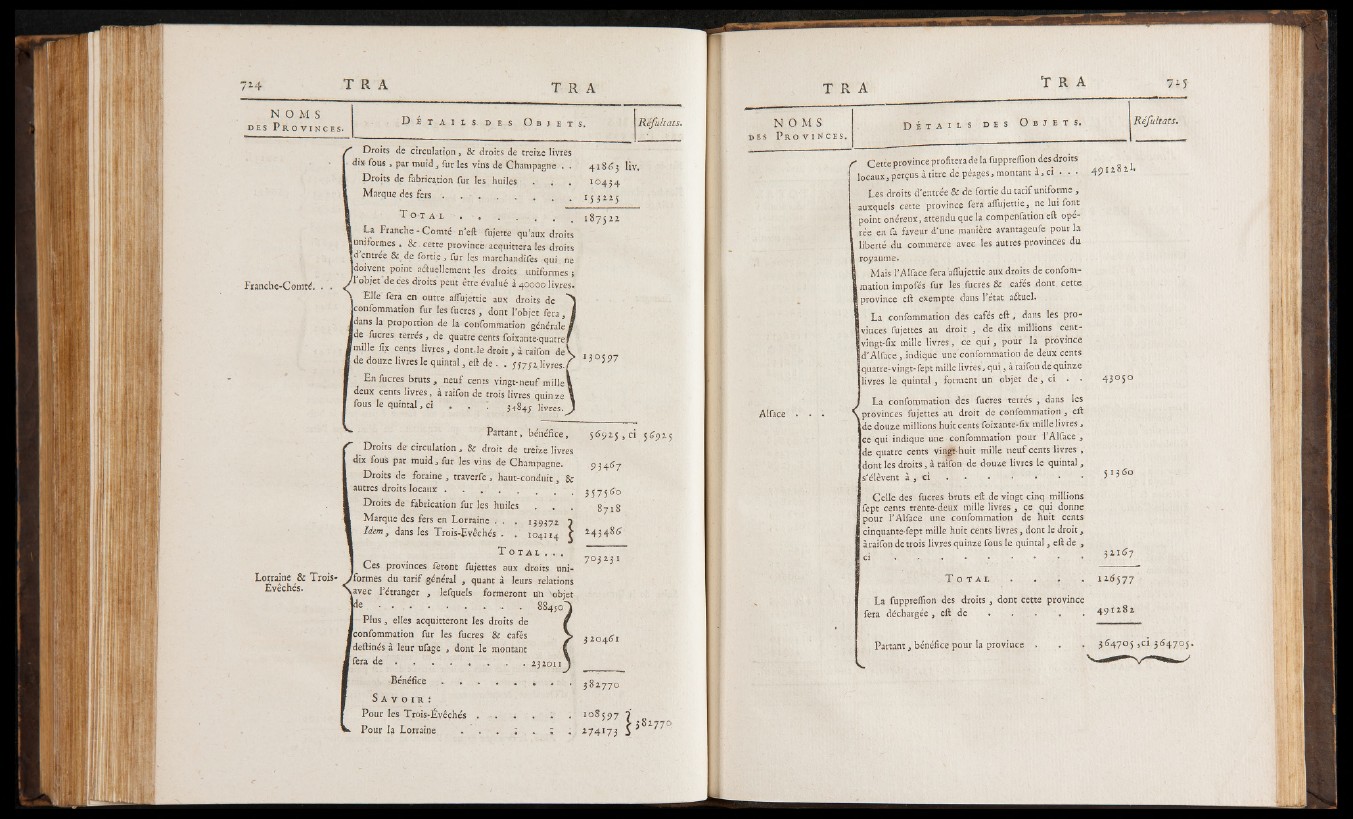 724 TRA TRA
NOMS
DES PROVINCES.
DÉTAILS DES OBJETS.
Réſultats.
Franche-Comté. . .
Droits de circulation, & droits de treize livres
dix ſous, par muid, ſur les vins de Champagne . . 41863 liv.
Droits de fabrication ſur les huiles . . . 10434
Marque des fers . . . . . . . 153225
TOTAL . . . . . . 187522
La Franche-Comté n'eſt ſujette qu'aux droits
uniformes, & cette province acquittera les droits
d'entrée & de ſortie, ſur les marchandiſes qui ne
doivent point actuellement les droits uniformes ;
l'objet de ces droits peut être évalué à 40000 livres.
Elle ſera en outre aſſujettie aux droits de
conſommation ſur les ſucres, dont l'objet ſera,
dans la proportion de la conſommation générale
de ſucres terrés, de quatre cents ſoixante-quatre
mille ſix cents livres, dont le droit, à raiſon de
de douze livres le quintal, eſt de . . 55752 livres. 130597
En ſucres bruts, neuf cents vingt-neuf mille
deux cents livres, à raiſon de trois livres quinze
ſous le quintal, ci . . . 34845 livres.
Partant, bénéfice, 56925, ci 56925
Lorraine & Trois-
Evêchés.
Droits de circulation, & droit de treize livres
dix ſous par muid, ſur les vins de Champagne. 93467
Droits de foraine, traverſe, haut-conduit, &
autres droits locaux . . . . . . . . 357560
Droits de fabrication ſur les huiles . . . 8718
Marque des fers en Lorraine . . . 139372
Idem, dans les Trois-Evêchés . . 104114 243486
TOTAL . . . 703231
Ces provinces ſeront ſujettes aux droits uni-
formes du tarif général, quant à leurs relations
avec l'étranger, leſquels formeront un objet
de . . . . . . . . . 88450
Plus, elles acquitteront les droits de
conſommation ſur les ſucres & cafés
deſtinés à leur uſage, dont le montant
ſera de . . . . . . . . 232011 320461
Bénéfice . . . . . . . . 382770
SAVOIR :
Pour les Trois-Évêchés . . . . . . 108597
Pour la Lorraine . . . . . . 274173 382770
TRA TRA 725
NOMS
DES PROVINCES.
DÉTAILS DES OBJETS.
Réſultats.
Alſace . . .
Cette province profitera de la ſuppreſſion des droits
locaux, perçus à titre de péages, montant à, ci . . . 491282 l.
Les droits d'entrée & de ſortie du tarif uniforme,
auxquels cette province ſera aſſujettie, ne lui ſont
point onéreux, attendu que la compenſation eſt opé-
rée en ſa faveur d'une manière avantageuſe pour la
liberté du commerce avec les autres provinces du
royaume.
Mais l'Alſace ſera aſſujettie aux droits de conſom-
mation impoſés ſur les ſucres & cafés dont cette
province eſt exempte dans l'état actuel.
La conſommation des cafés eſt, dans les pro-
vinces ſujettes au droit, de dix millions cent-
vingt-ſix mille livres, ce qui, pour la province
d'Alſace, indique une conſommation de deux cents
quatre-vingt-ſept mille livres, qui, à raiſon de quinze
livres le quintal, forment un objet de, ci . . 43050
La conſommation des ſucres terrés, dans les
provinces ſujettes au droit de conſommation, eſt
de douze millions huit cents ſoixante-ſix mille livres,
ce qui indique une conſommation pour l'Alſace,
de quatre cents vingt-huit mille neuf cents livres,
dont les droits, à raiſon de douze livres le quintal,
s'élèvent à, ci . . . . . . . 51360
Celle des ſucres bruts eſt de vingt cinq millions
ſept cents trente-deux mille livres, ce qui donne
pour l'Alſace une conſommation de huit cents
cinquante-ſept mille huit cents livres, dont le droit,
à raiſon de trois livres quinze ſous le quintal, eſt de,
ci . . . . . . . . 32167
TOTAL . . . . 126577
La ſuppreſſion des droits, dont cette province
ſera déchargée, eſt de . . . . . 491282
Partant, bénéfice pour la province . . . 364705, ci 364705.